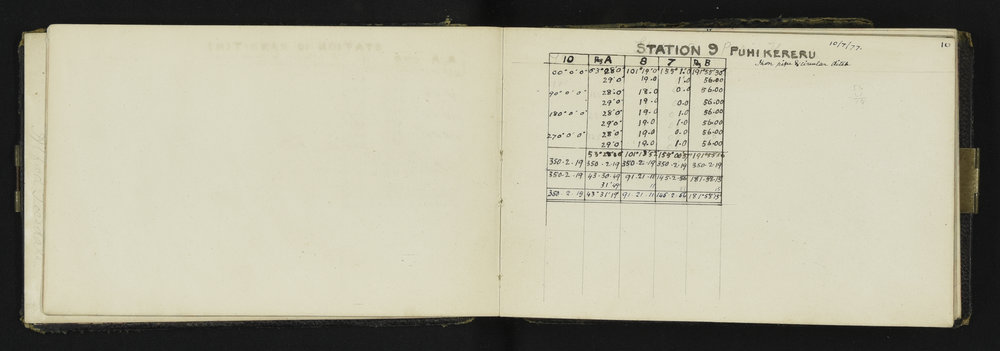 10/7/77.
10
STATION 9 PUHIKERERU
Iron pipe & circular ditch
10 Peg A 8 7 Peg B
00° 0' 0" 53° 28' 0" 101° 19' 0" 155° 1.0 191° 55' 30"
29' 0" 19.0 1.0 56.00
90° 0' 0" 28.0 18.0 0.0 56.00
29' 0 19.0 0.0 56.00
180° 0' 0" 28' 0" 19.0 1.0 56.00
29' 0" 19.0 1.0 56.00
270° 0' 0" 28' 0" 19.0 0.0 56.00
29' 0" 19.0 1.0 56.00
53° 28' 101° 18' 52 155° 00' 191° 55'
350.2.19 350.2.19 350.2.19 350.2.19 350.2.19
350.2.19 43.30.49 91.21.11 145.2.56 181.58.15
31'.49 11 15
350.2.19 43° 31' 19" 91.21.11 145.2.56 181° 58' 15"